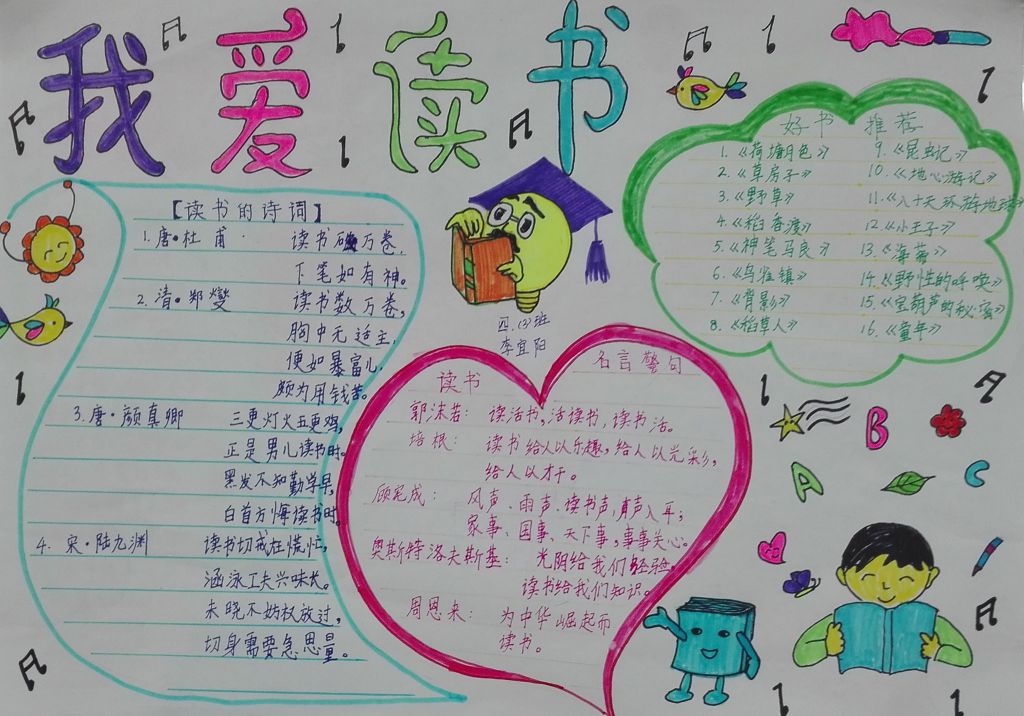 我爱读书
【读书的诗词】
1. 唐·杜甫 读书破万卷,
下笔如有神。
2. 清·郑燮 读书数万卷,
胸中无适主,
便如暴富儿,
颇为用钱苦。
3. 唐·颜真卿 三更灯火五更鸡,
正是男儿读书时。
黑发不知勤学早,
白首方悔读书时。
4. 宋·陆九渊 读书切戒在慌忙,
涵泳工夫兴味长。
未晓不妨权放过,
切身需要急思量。
四.(3)班
李宜阳
读书 名言警句
郭沫若: 读活书,活读书,读书活。
培根: 读书给人以乐趣,给人以光彩,
给人以才干。
顾宪成: 风声、雨声、读书声,声声入耳;
家事、国事、天下事,事事关心。
奥斯特洛夫斯基: 光阴给我们经验,
读书给我们知识。
周恩来: 为中华崛起而
读书。
好书 推荐
1.《荷塘月色》
2.《草房子》
3.《野草》
4.《稻香渡》
5.《神笔马良》
6.《乌丢镇》
7.《背影》
8.《稻草人》
9.《昆虫记》
10.《地心游记》
11.《八十天环游地球》
12.《小王子》
13.《海蒂》
14.《野性的呼唤》
15.《宝葫芦的秘密》
16.《童年》
A
B
C